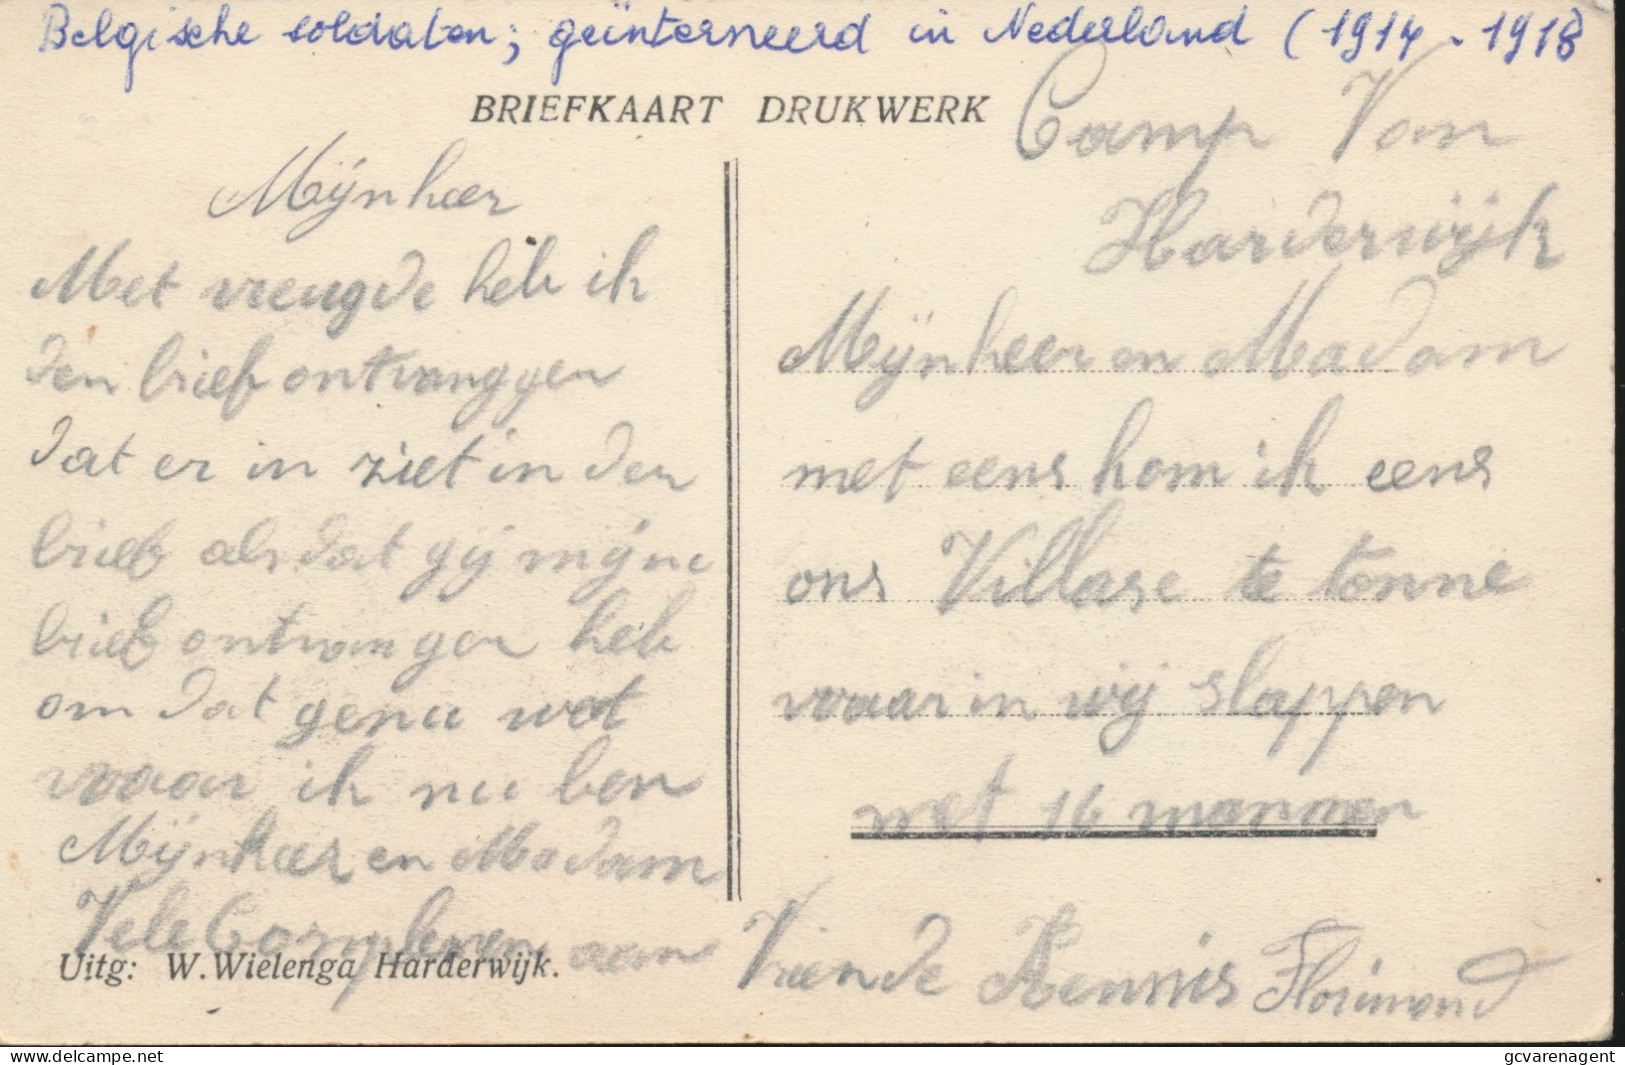 Belgische soldaten; geïnterneerd in Nederland (1914 - 1918
BRIEFKAART DRUKWERK
Camp Van
Harderwijk
Mijnheer
Met vreugde heb ik
den brief ontvanggen
dat er in ziet in den
brief als dat gij mijne
brief ontvangen heb
om dat genu wet
waar ik nu ben
Mijnheer en Madam
Vele Complemen aan
Uitg: W. Wielenga Harderwijk.
Mijnheer en Madam
met eens kom ik eens
ons Villase te tonne
waar in wij slappen
met 16 mannen
Vriende Kennis Florimond
delcampe.net
gcvarenagent